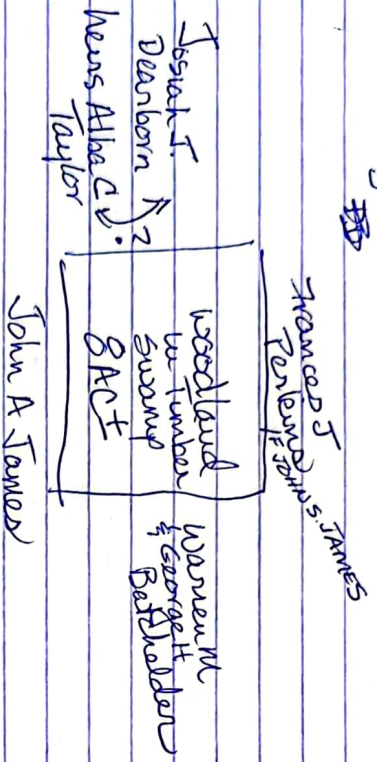 Frances J
Perkins
F JOHN S. JAMES
Josiah J.
Dearborn ?
heirs Alba C
Taylor
woodland
in Timber
Swamp
8 AC±
Warren M
& George H
Batchelder
John A James